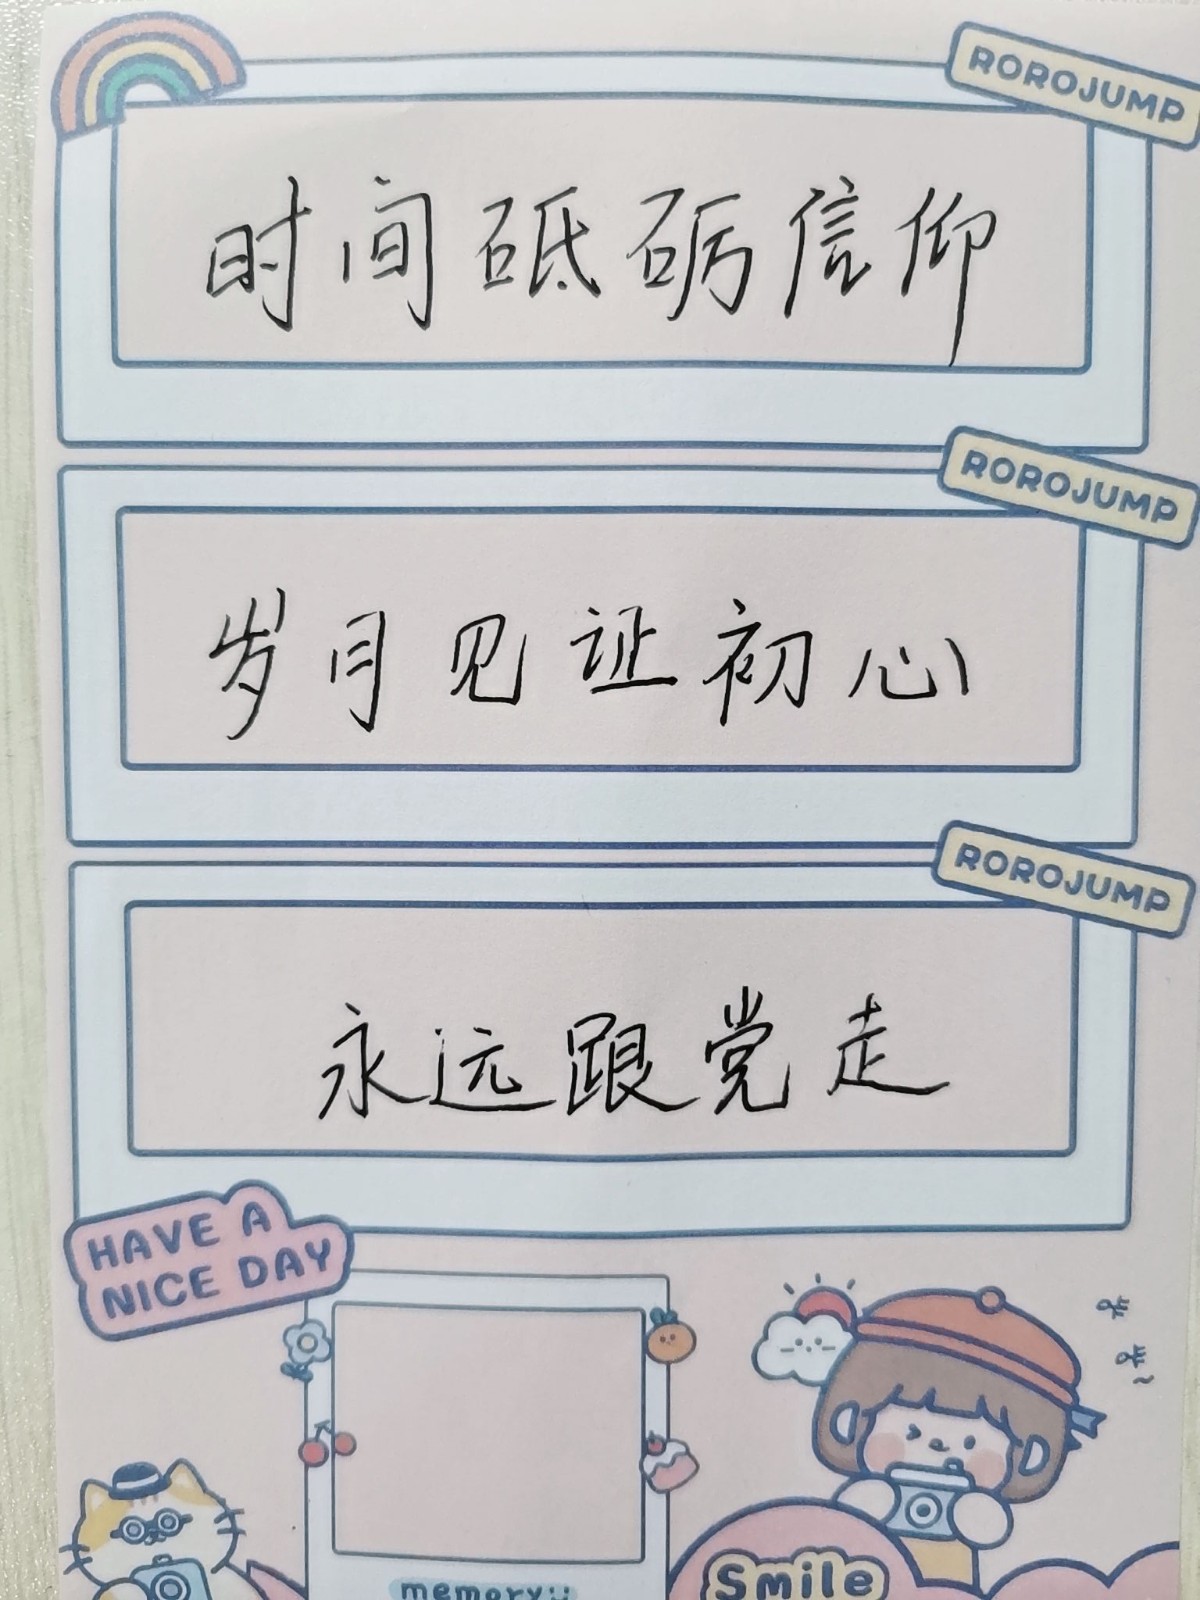 ROROJUMP
时间砥砺信仰
ROROJUMP
岁月见证初心
ROROJUMP
永远跟党走
HAVE A
NICE DAY
咔
咔~
memory
Smile